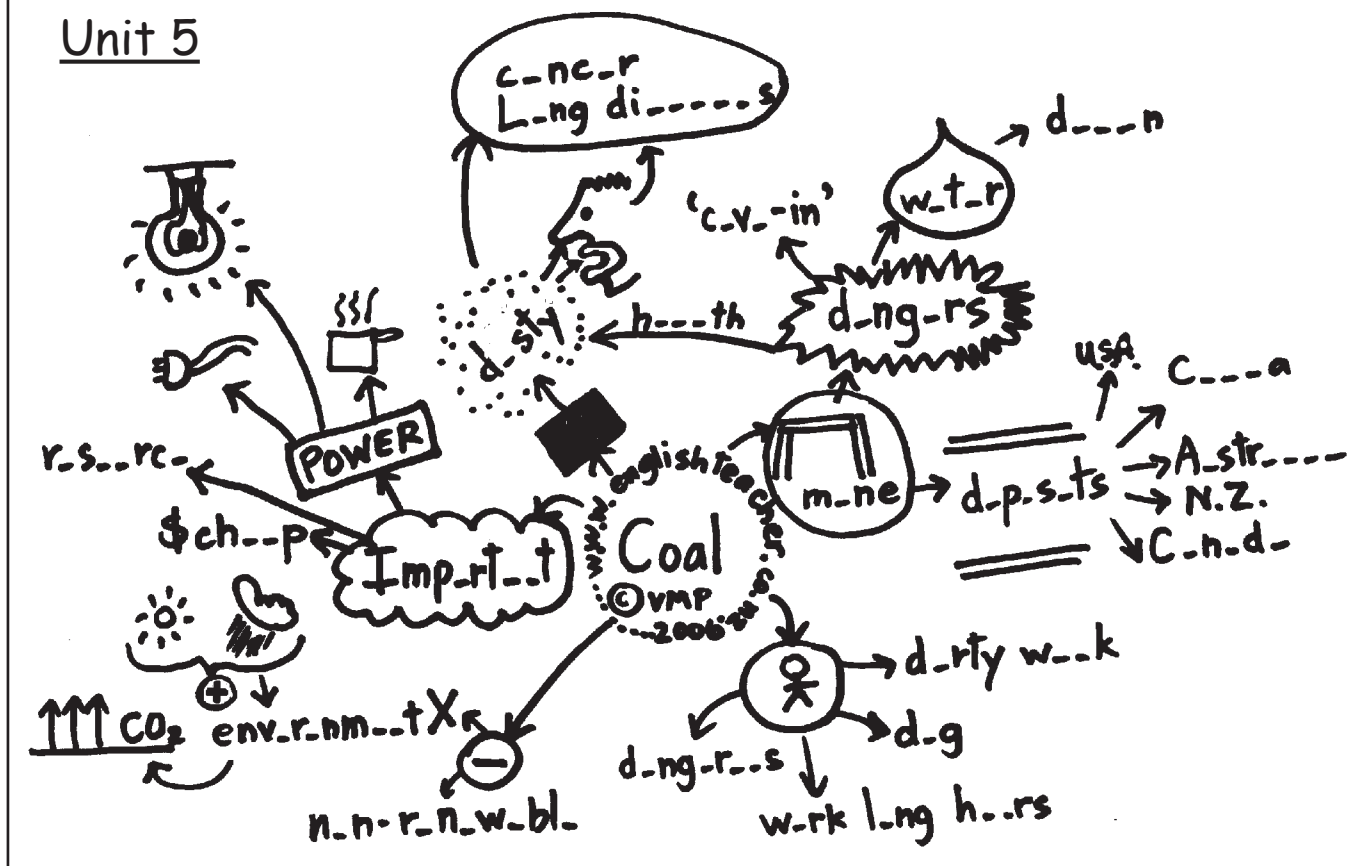 Unit 5
c_nc_r
L_ng di_____s
d___n
w_t_r
'c_v_-in'
d_ng_rs
h___th
d_sty
USA.
C___a
A_str____
N.Z.
C_n_d_
d_p_s_ts
m_ne
POWER
r_s__rc_
$ch__p
Imp_rt__t
www.englishteacher.co.nz
Coal
© VMP
2006
d_rty w__k
d_g
w_rk l_ng h__rs
d_ng_r__s
CO₂ env_r_nm__t X
n_n-r_n_w_bl_